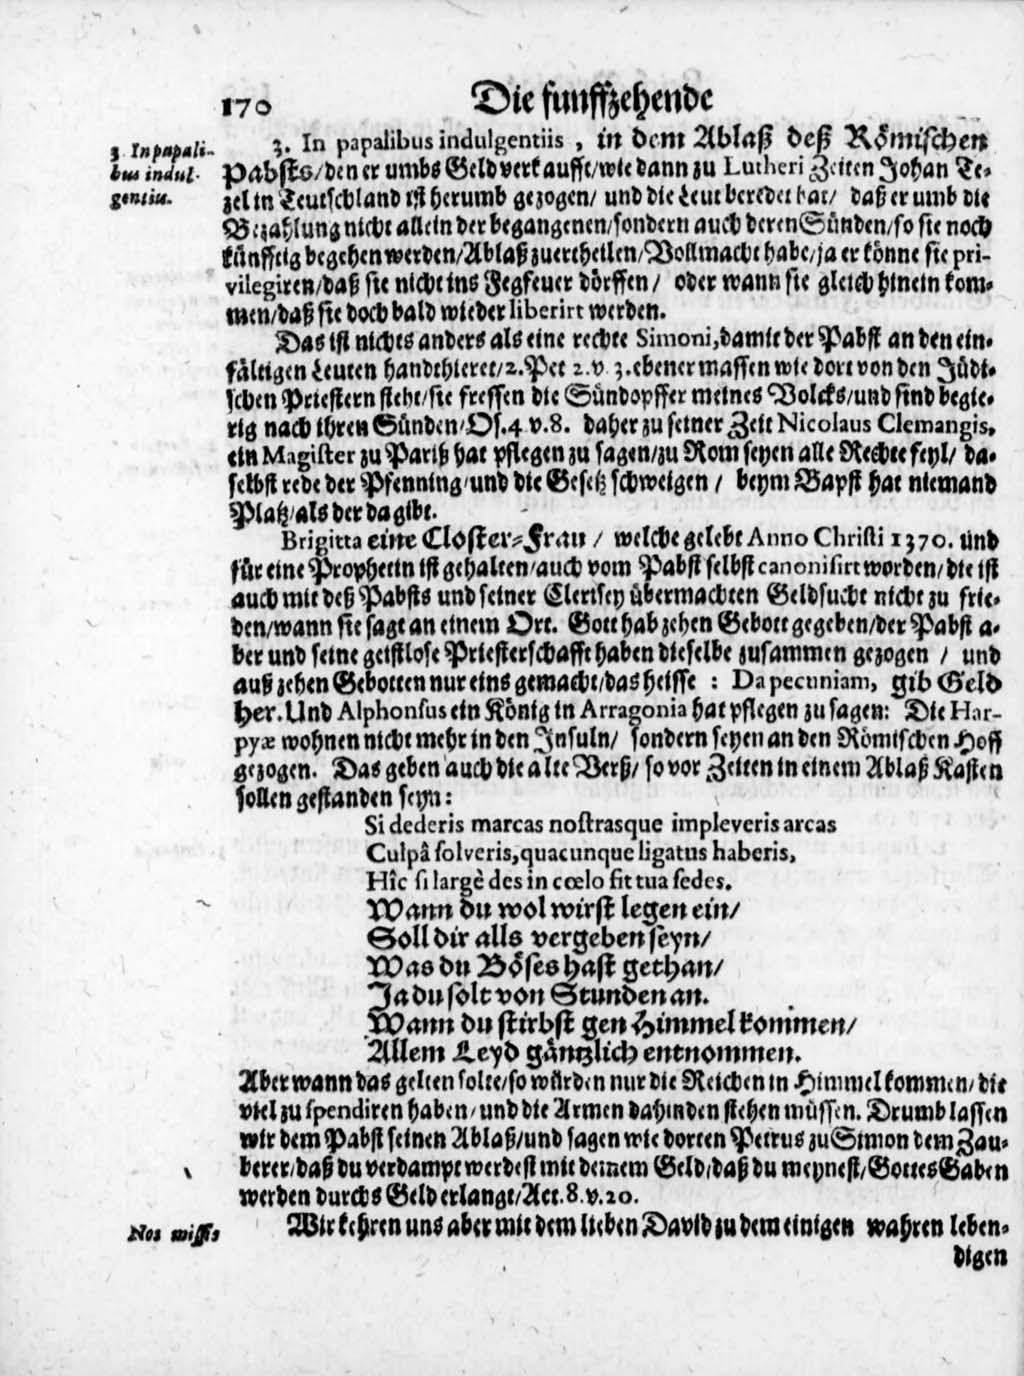 170 Die funffzehende
3. In papali-
bus indul-
gentiis.
3. In papalibus indulgentiis, in dem Ablaß deß Römischen
Pabsts/den er umbs Geld verkaufft/wie dann zu Lutheri Zeiten Johan Te-
zel in Teutschland ist herumb gezogen/ und die Leut beredet hat/ daß er umb die
Bezahlung nicht allein der begangenen/sondern auch deren Sünden/so sie noch
künfftig begehen werden/Ablaß zuertheilen/Vollmacht habe/ja er könne sie pri-
vilegiren/daß sie nicht ins Fegfeuer dörffen/ oder wann sie gleich hinein kom-
men/daß sie doch bald wieder liberirt werden.
Das ist nichts anders als eine rechte Simoni, damit der Pabst an den ein-
fältigen Leuten handthieret/2. Pet 2. v. 3. ebener massen wie dort von den Jüdi-
schen Priestern steht/sie fressen die Sündopffer meines Volcks/und sind begie-
rig nach ihren Sünden/Os. 4 v. 8. daher zu seiner Zeit Nicolaus Clemangis,
ein Magister zu Pariß hat pflegen zu sagen/zu Rom seyen alle Rechte feyl/ da-
selbst rede der Pfenning/und die Gesetz schweigen/ beym Bapst hat niemand
Platz/als der da gibt.
Brigitta eine Closter-Frau/ welche gelebt Anno Christi 1370. und
für eine Prophetin ist gehalten/auch vom Pabst selbst canonisirt worden/die ist
auch mit deß Pabsts und seiner Clerisey übermachten Geldsucht nicht zu frie-
den/wann sie sagt an einem Ort. Gott hab zehen Gebott gegeben/der Pabst a-
ber und seine geistlose Priesterschafft haben dieselbe zusammen gezogen/ und
auß zehen Gebotten nur eins gemacht/das heisse: Da pecuniam, gib Geld
her. Und Alphonsus ein König in Arragonia hat pflegen zu sagen: Die Har-
pyæ wohnen nicht mehr in den Insuln/ sondern seyen an den Römischen Hoff
gezogen. Das geben auch die alte Verß/ so vor Zeiten in einem Ablaß Kasten
sollen gestanden seyn:
Si dederis marcas nostrasque impleveris arcas
Culpâ solveris, quacunque ligatus haberis,
Hîc si largè des in cœlo sit tua sedes.
Wann du wol wirst legen ein/
Soll dir alls vergeben seyn/
Was du Böses hast gethan/
Ja du solt von Stunden an.
Wann du stirbst gen Himmel kommen/
Allem Leyd gäntzlich entnommen.
Aber wann das gelten solte/so würden nur die Reichen in Himmel kommen/die
viel zu spendiren haben/und die Armen dahinden stehen müssen. Drumb lassen
wir dem Pabst seinen Ablaß/und sagen wie dorten Petrus zu Simon dem Zau-
berer/daß du verdampt werdest mit deinem Geld/daß du meynest/Gottes Gaben
werden durchs Geld erlangt/Act. 8. v. 20.
Nos missis
Wir kehren uns aber mit dem lieben David zu dem einigen wahren leben-
digen